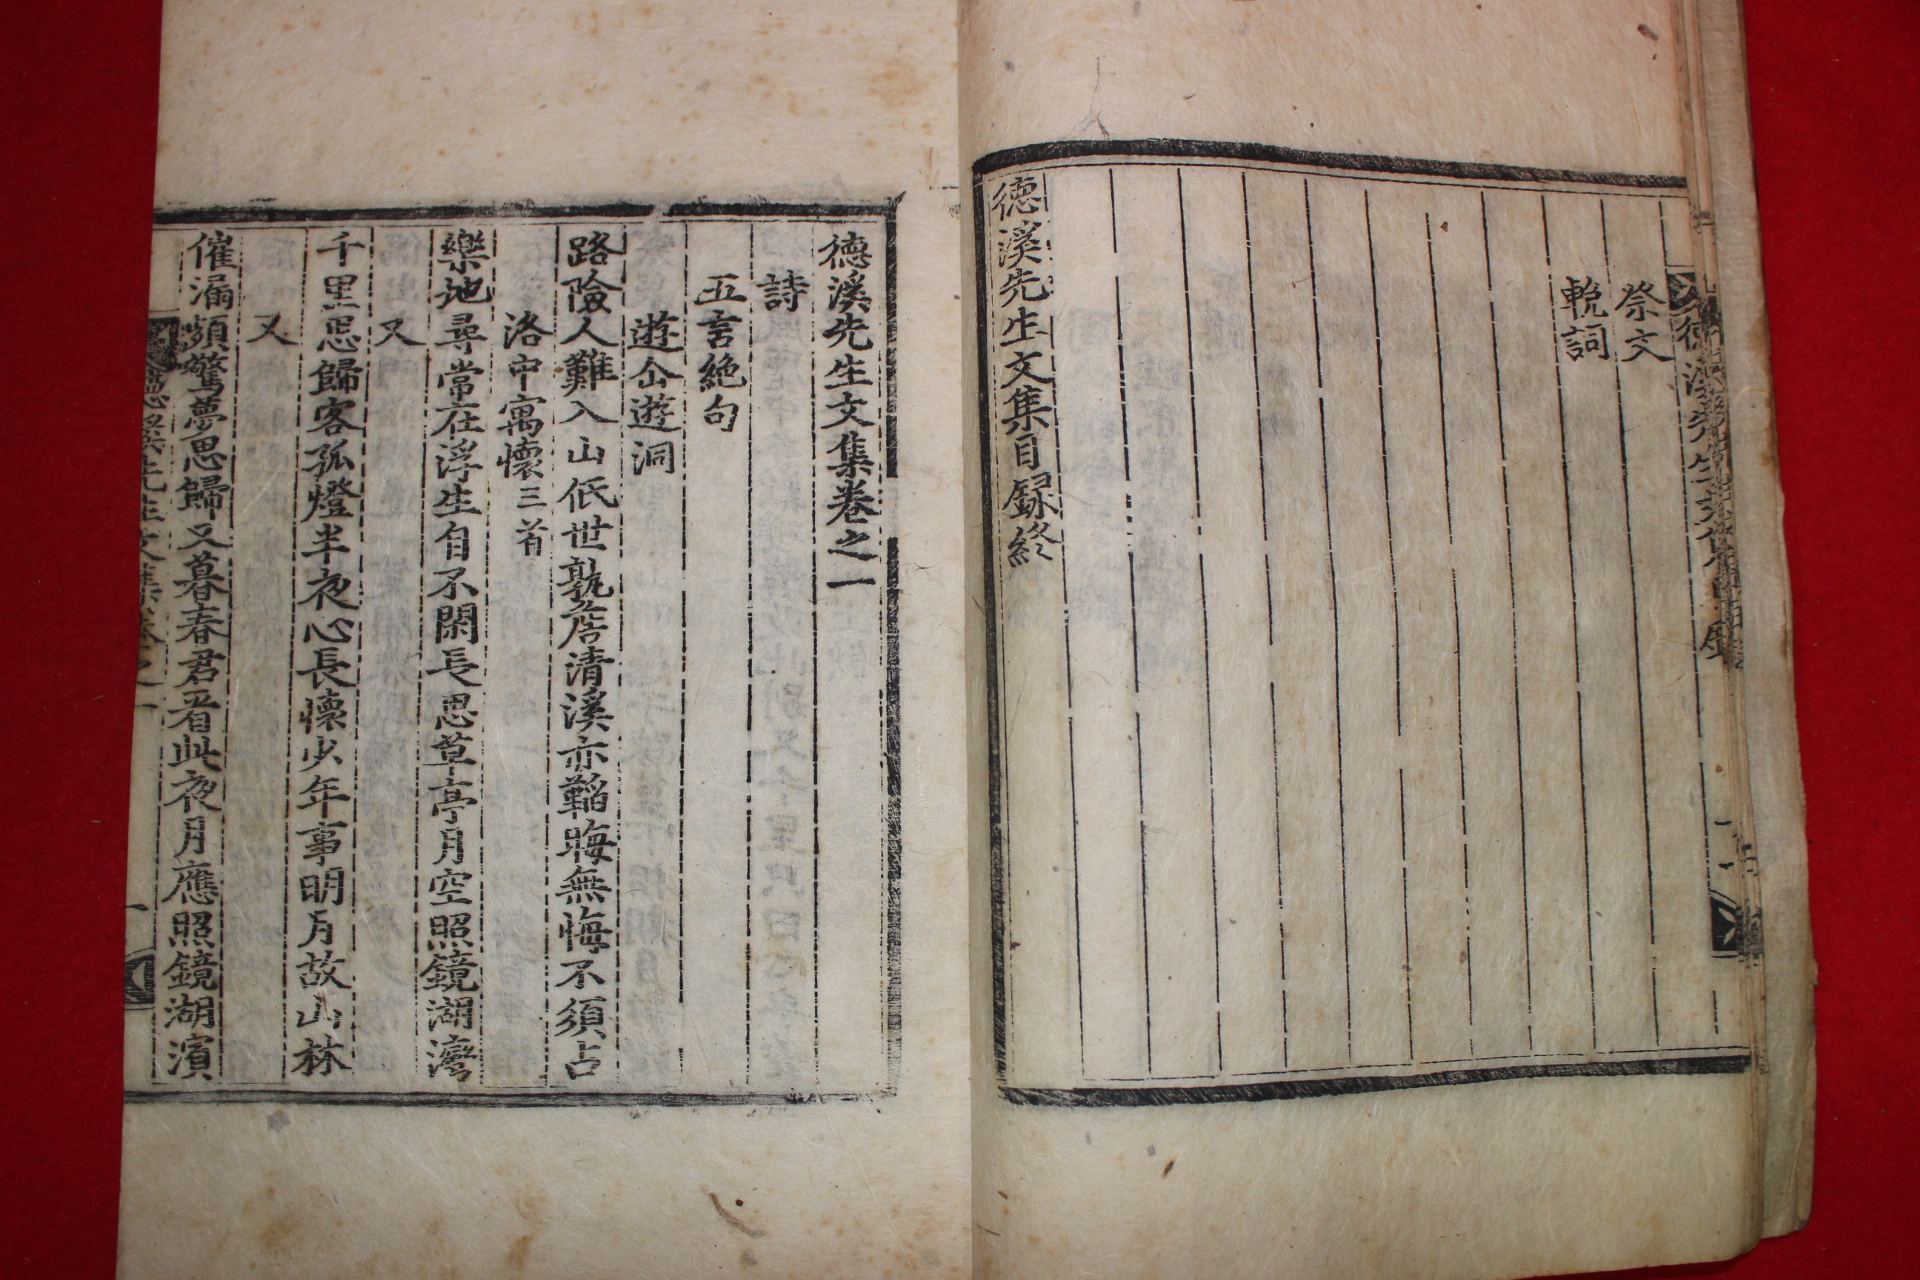 祭文
輓詞
德溪先生文集目録終
德溪先生文集卷之一
詩
五言絶句
遊仚遊洞
路險人難入山低世孰居清溪亦韜晦無悔不須占
洛中寓懷三首
樂地尋常在浮生自不閑長思草亭月空照鏡湖灣
又
千里思歸客孤燈半夜心長懷少年事明月故山林
又
催漏頻驚夢思歸又暮春君看此夜月應照鏡湖濱
德溪先生文集卷之一
一